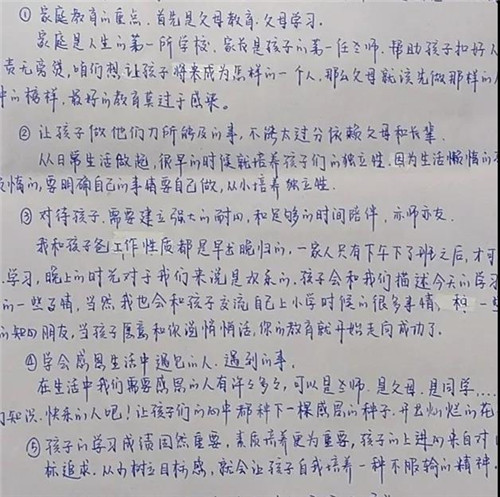 ① 家庭教育的重点,首先是父母教育.父母学习.
家庭是人生的第一所学校.家长是孩子的第一任老师.帮助孩子扣好人
责无旁贷,咱们想让孩子将来成为怎样的一个人,那么父母就该先做那样的人
中的榜样,最好的教育莫过于感染。
② 让孩子做他们力所能及的事,不能太过分依赖父母和长辈.
从日常生活做起,很早的时候就培养孩子们的独立性.因为生活懒惰的
懒惰的,要明确自己的事情要自己做,从小培养独立性.
③ 对待孩子,需要建立强大的耐心,和足够的时间陪伴,亦师亦友.
我和孩子爸工作性质都是早出晚归的,一家人只有下午下了班之后,才可
学习,晚上的时光对于我们来说是欢乐的,孩子会和我们描述今天的学习
的一些事情,当然我也会和孩子交流自己上小学时候的很多事情,和一些
的知心朋友,当孩子愿意和你说悄悄话,你的教育就开始走向成功了.
④ 学会感恩生活中遇见的人.遇到的事.
在生活中我们需要感恩的人有许许多多,可以是老师.是父母.是同学....
们知识.快乐的人吧!让孩子们的心中都种下一棵感恩的种子,开出灿烂的花
⑤ 孩子的学习成绩固然重要,素质培养更为重要,孩子的上进心来自对
标追求.从小树立目标感,就会让孩子自我培养一种不服输的精神.